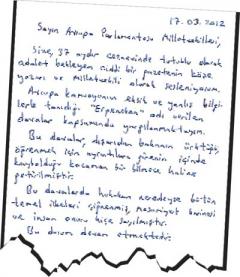 17.03.2012
Sayın Avrupa Parlamentosu Milletvekilleri,
Size, 37 aydır cezaevinde tutuklu olarak
adalet bekleyen ciddi bir gazetenin köşe
yazarı ve milletvekili olarak sesleniyorum.
Avrupa kamuoyunun eksik ve yanlış bilgi-
lerle tanıdığı "Ergenekon" adı verilen
davalar kapsamında yargılanmaktayım.
Bu davalar, dışarıdan bakanın ürktüğü,
öğrenmek için ayrıntılara girenin içinde
kaybolduğu kocaman bir bilmece haline
getirilmiştir.
Bu davalarda hukukun neredeyse bütün
temel ilkeleri çiğnenmiş, masumiyet karinesi
ve insan onuru hiçe sayılmıştır.
Bu durum devam etmektedir.